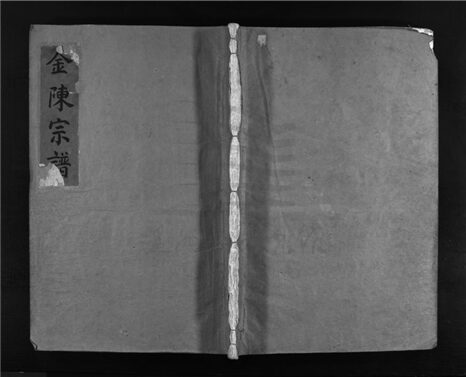 金陳宗譜